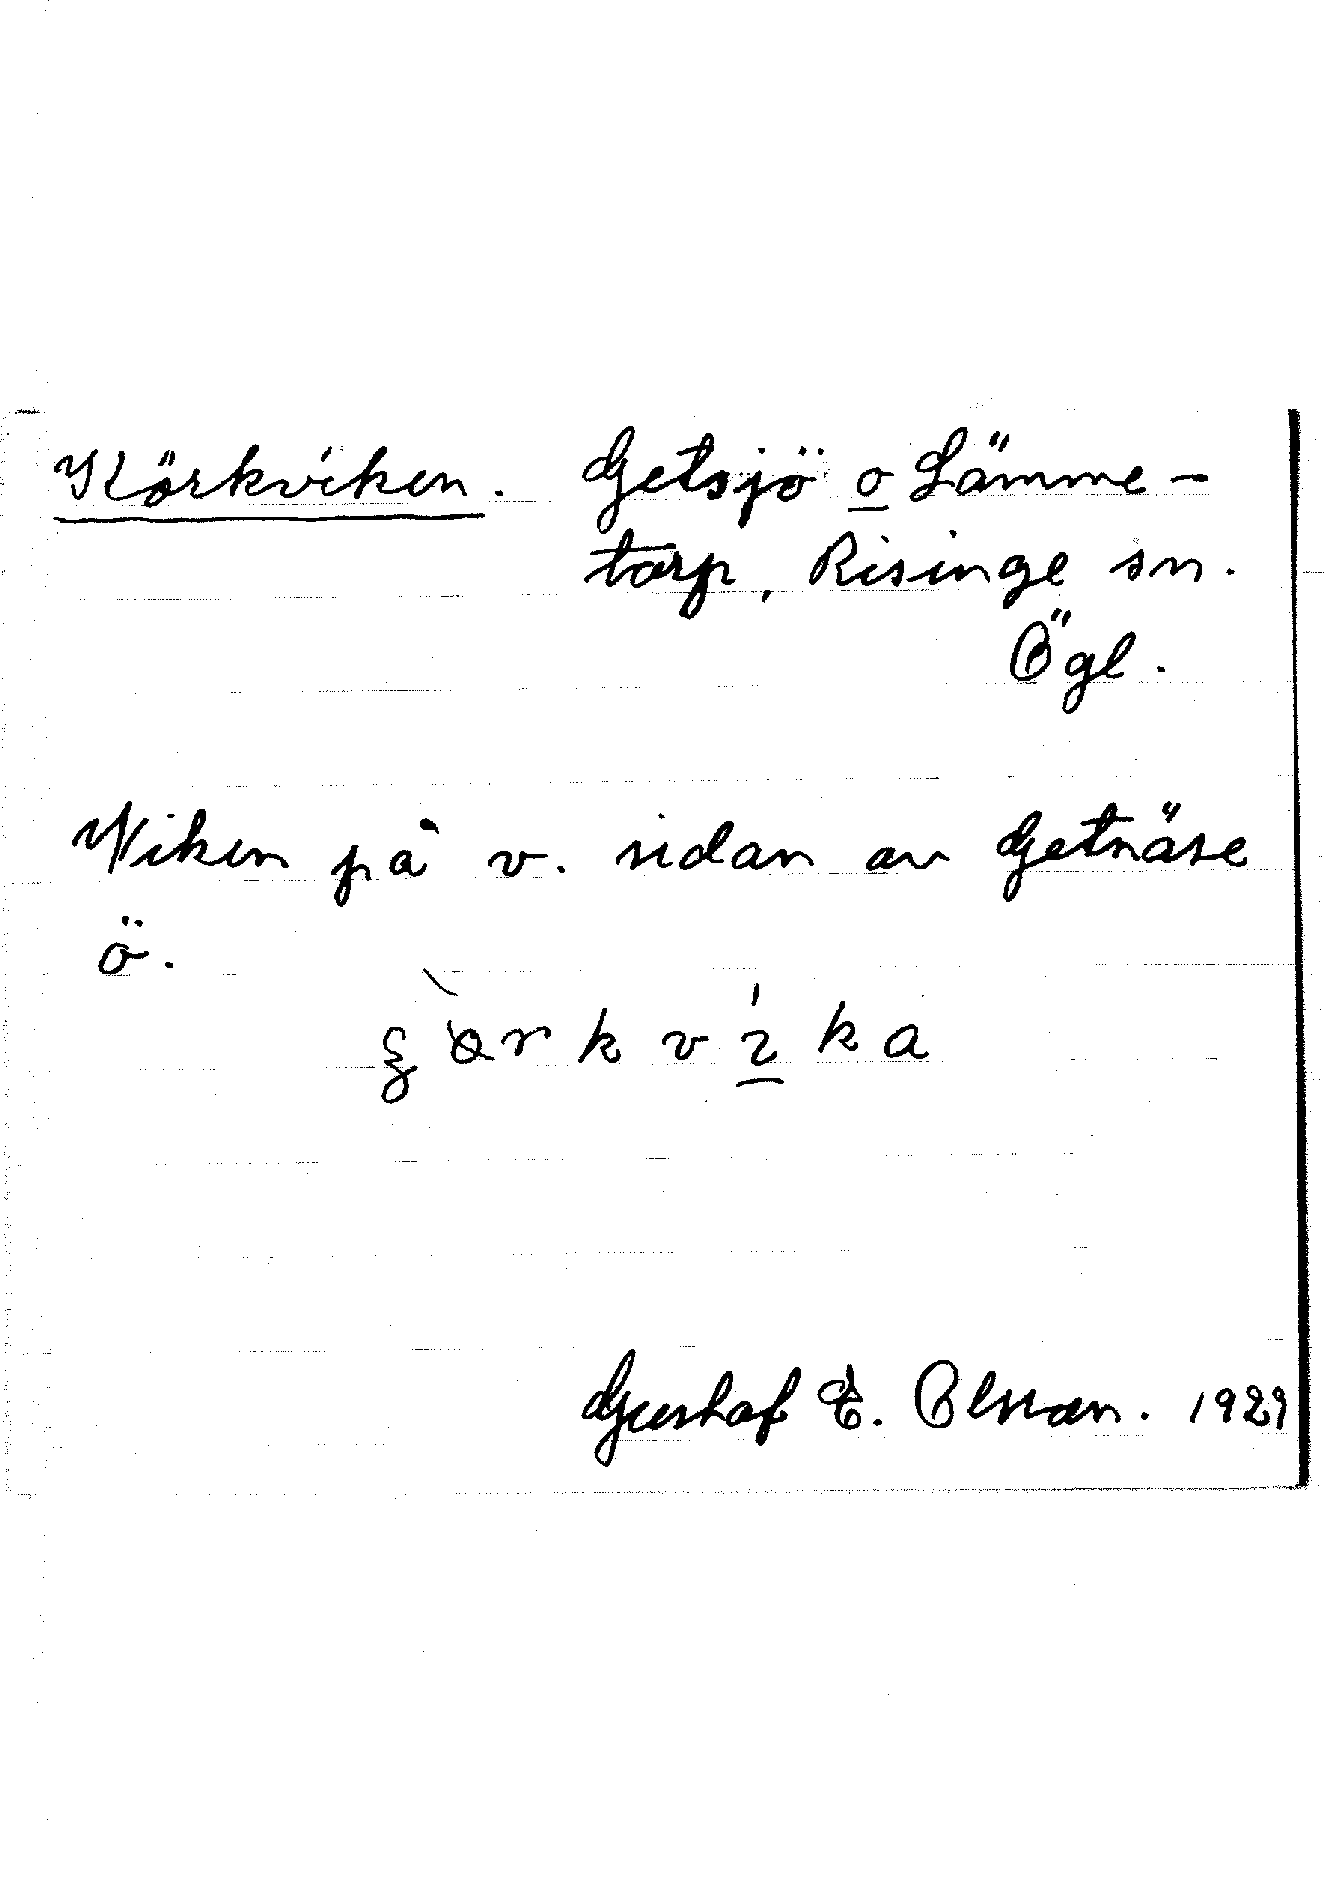 Körkviken. Getsjö o Lämme-
torp, Risinge sn.
Ögl.
Viken på v. sidan av Getnäse
ö.
Gustaf E. Olsson. 1929